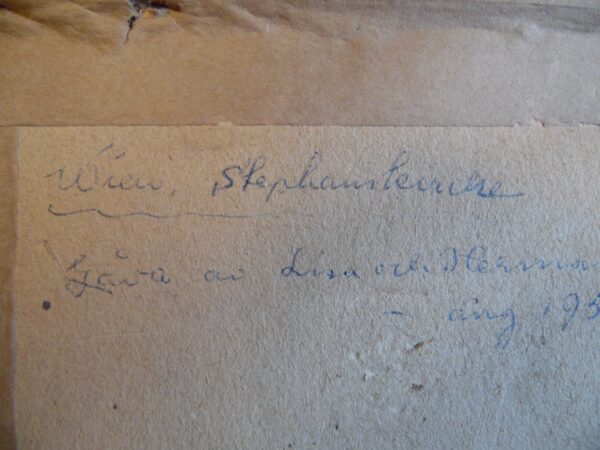 Wien, Stephanskirche
Gåva av Lisa och Herma
– aug. 195